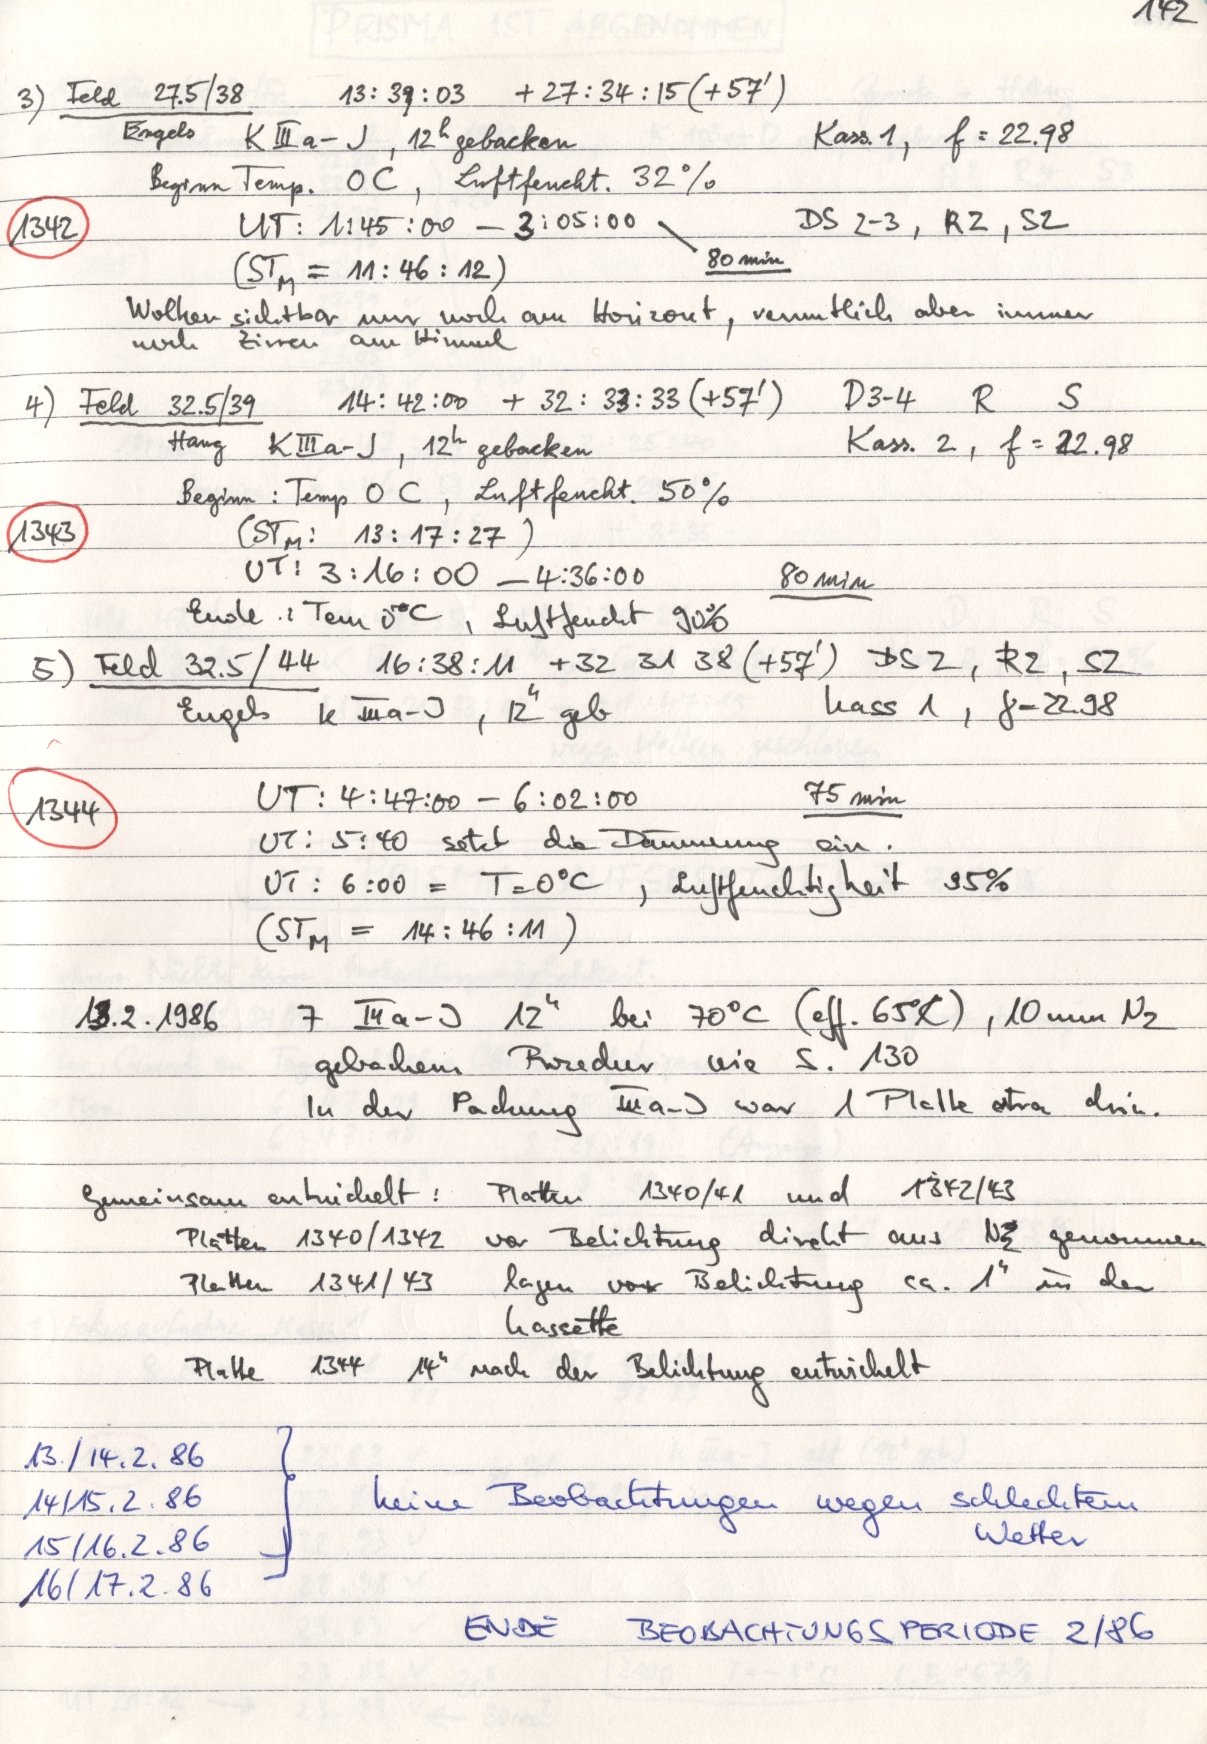 142
3) Feld 27.5/38 13:39:03 +27:34:15 (+57')
Engels K IIIa-J, 12h gebacken Kass. 1, f = 22.98
Beginn Temp. 0 C, Luftfeucht. 32%
1342 UT: 1:45:00 – 3:05:00 DS 2-3, R2, S2
(STM = 11:46:12) 80 min
Wolken sichtbar nur noch am Horizont, vermutlich aber immer
noch Zirren am Himmel
4) Feld 32.5/39 14:42:00 + 32:33:33 (+57') D3-4 R S
Hang K IIIa-J, 12h gebacken Kass. 2, f = 22.98
Beginn: Temp 0 C, Luftfeucht. 50%
1343 (STM: 13:17:27)
UT: 3:16:00 – 4:36:00 80 min
Ende: Tem 0°C, Luftfeucht 90%
5) Feld 32.5/44 16:38:11 +32 31 38 (+57') DS 2, R2, S2
Engels K IIIa-J, 12h geb Kass 1, f=22.98
1344 UT: 4:47:00 – 6:02:00 75 min
UT: 5:40 setzt die Dämmerung ein.
UT: 6:00 = T=0°C, Luftfeuchtigkeit 95%
(STM = 14:46:11)
13.2.1986 7 IIIa-J 12h bei 70°C (eff. 65°C), 10 mm N2
gebacken Prozedur wie S. 130
In der Packung IIIa-J war 1 Platte extra drin.
Gemeinsam entwickelt: Platten 1340/41 und 1342/43
Platten 1340/1342 vor Belichtung direkt aus N2 genommen
Platten 1341/43 lagen vor Belichtung ca. 1h in der
Kassette
Platte 1344 14h nach der Belichtung entwickelt
13./14.2.86
14/15.2.86 keine Beobachtungen wegen schlechtem
15/16.2.86 Wetter
16/17.2.86
ENDE BEOBACHTUNGSPERIODE 2/86